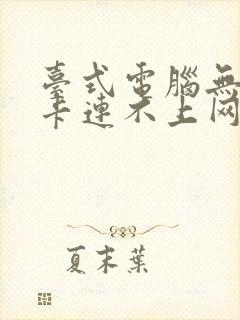 臺式電腦無
卡連不上网
夏末葉